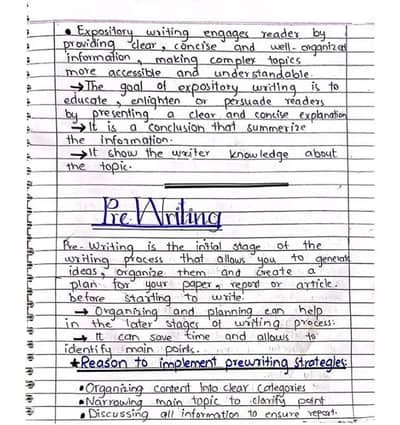 • Expository writing engages reader by
providing clear, concise and well-organized
information, making complex topics
more accessible and understandable.
→The goal of expository writing is to
educate, enlighten or persuade readers
by presenting a clear and concise explanation
→It is a conclusion that summerize
the information.
→It show the writer knowledge about
the topic.
Pre Writing
Pre-Writing is the initial stage of the
writing process that allows you to generate
ideas, organize them and create a
plan for your paper, report or article.
before starting to write.
→ Organising and planning can help
in the later stages of writing process.
→ It can save time and allows to
identify main points.
★Reason to implement prewriting strategies:
•Organising content into clear categories
•Narrowing main topic to clarify point
•Discussing all information to ensure report.